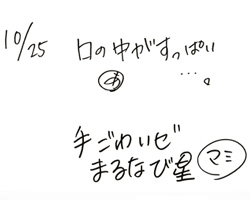 10/25 口の中がすっぱい
あ …。
手ごわいぜ
まるなび星 マミ